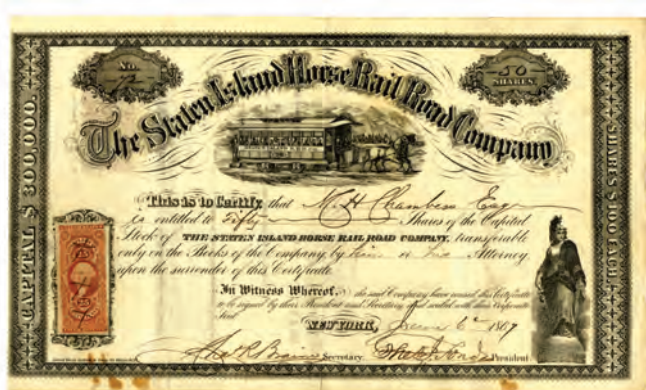 No.
50
SHARES.
The Staten Island Horse Rail Road Company
CAPITAL $300,000.
SHARES $100 EACH.
This is to Certify that
Chambers Esqr
is entitled to Fifty Shares of the Capital
Stock of THE STATEN ISLAND HORSE RAIL ROAD COMPANY, transferable
only on the Books of the Company by him or his Attorney
upon the surrender of this Certificate.
In Witness Whereof, the said Company have caused this Certificate
to be signed by their President and Secretary and sealed with their Corporate
Seal
NEW YORK, June 6th 1867
Secretary.
President